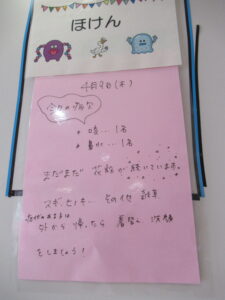 ほけん
4月9日(木)
今日の病欠
* 咳… 1名
* 鼻水… 1名
まだまだ 花粉が 続いています。
スギ、ヒノキ… その他 雑草
外から 帰ったら 着替え 洗顔
をしましょう!